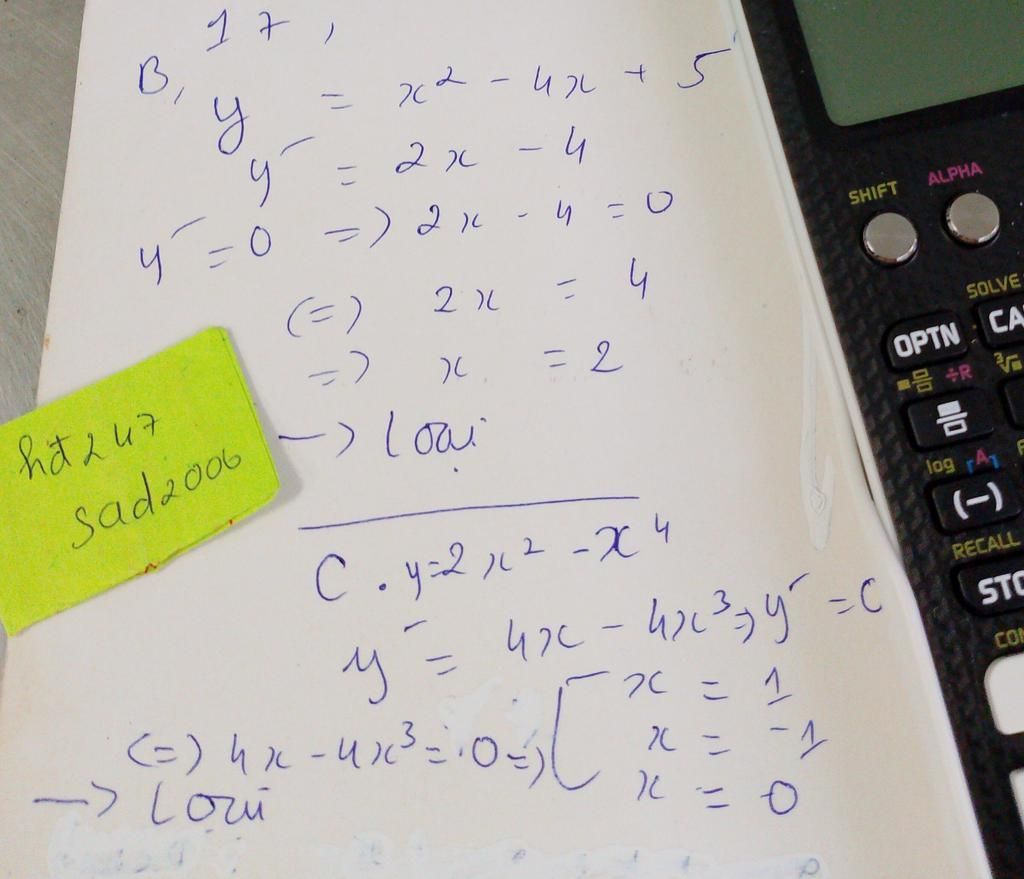 17,
B, y = x² - 4x + 5
y' = 2x - 4
y' = 0 => 2x - 4 = 0
(=) 2x = 4
=> x = 2
-> Loại
hđ247
sad2006
C. y=2x² - x⁴
y' = 4x - 4x³ => y' = 0
(=) 4x - 4x³ = 0 => [ x = 1
x = -1
x = 0
-> Loại
SHIFT ALPHA
SOLVE
OPTN CA
÷R
log
(-)
RECALL
STO
CON